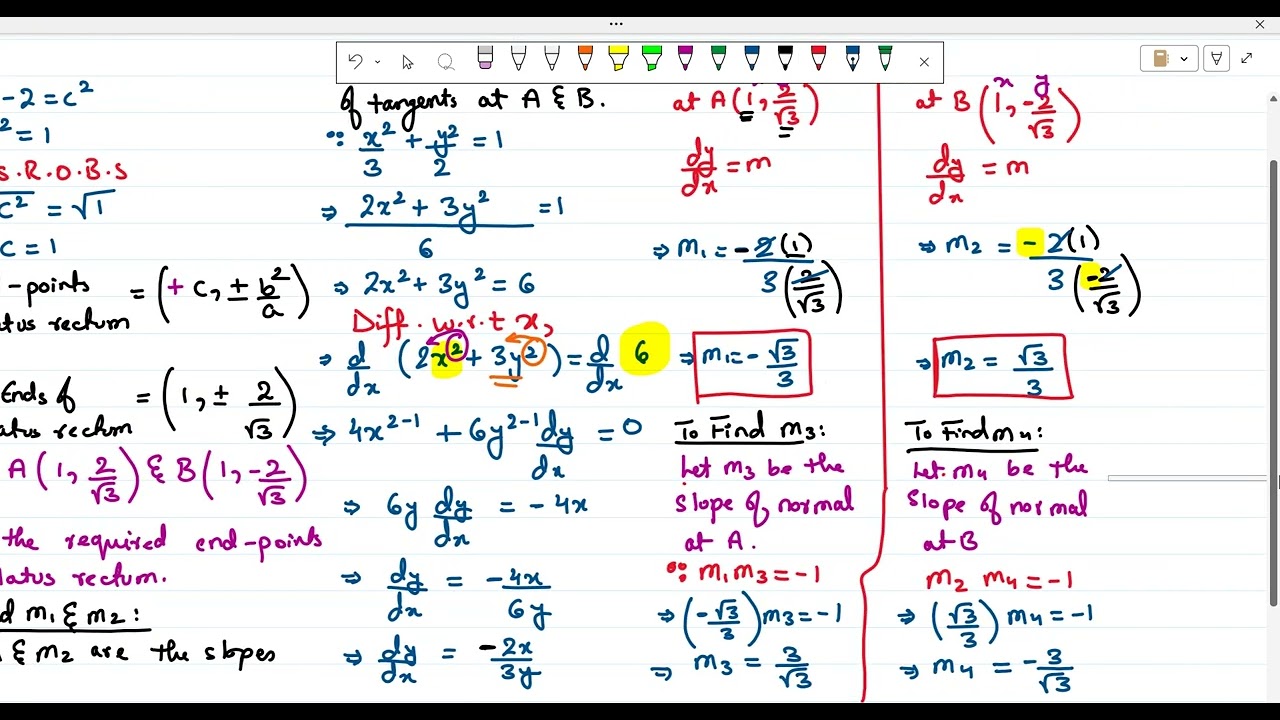 -2 = c²
² = 1
S.R.O.B.S
c² = √1
c = 1
-points
atus rectum = (+ c, ± b²/a)
Ends of
atus rectum = (1, ± 2/√3)
A(1, 2/√3) & B(1, -2/√3)
the required end-points
latus rectum.
d m₁ & m₂:
& m₂ are the slopes
of tangents at A & B.
∵ x²/3 + y²/2 = 1
⇒ (2x² + 3y²)/6 = 1
⇒ 2x² + 3y² = 6
Diff. w.r.t x,
⇒ d/dx (2x² + 3y²) = d/dx 6
⇒ 4x²⁻¹ + 6y²⁻¹ dy/dx = 0
⇒ 6y dy/dx = -4x
⇒ dy/dx = -4x/6y
⇒ dy/dx = -2x/3y
at A(1, 2/√3)
dy/dx = m
⇒ m₁ = -2(1)/3(2/√3)
⇒ m₁ = -√3/3
To Find m₃:
Let m₃ be the
slope of normal
at A.
∵ m₁m₃ = -1
⇒ (-√3/3)m₃ = -1
⇒ m₃ = 3/√3
x y
at B(1, -2/√3)
dy/dx = m
⇒ m₂ = -2(1)/3(-2/√3)
⇒ m₂ = √3/3
To Find m₄:
Let m₄ be the
slope of normal
at B
m₂ m₄ = -1
⇒ (√3/3) m₄ = -1
⇒ m₄ = -3/√3